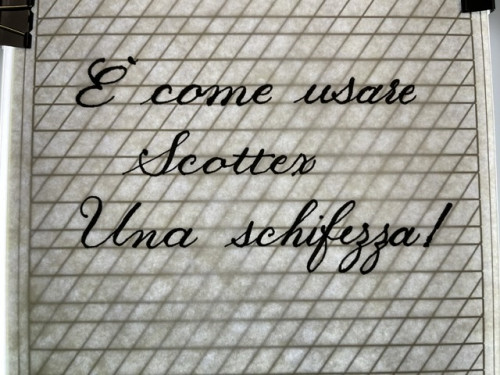 E' come usare
Scottex
Una schifezza!